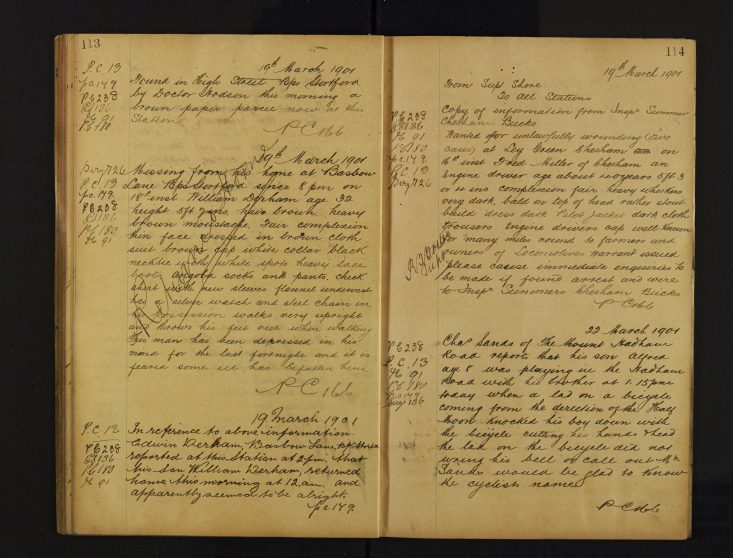 113
P.C. 13
po 149
PC 238
136
91
PC 180
19th March 1901
Found in High Street Bps Stortford
by Doctor Dodson this morning a
brown paper parcel now at the
Station
PC 166
Serg 726
P.C. 13
po. 149
PC 238
136
PC 180
91
19th March 1901
Missing from his home at Basbow
Lane Bps Stortford since 8 pm on
18th inst William Derham age 32
height 5ft 7 ins, hair brown, heavy
brown moustache, fair complexion
thin face dressed in brown cloth
suit brown cap white collar black
necktie with white spots heavy lace
boots angola socks and pants, check
shirt with new sleeves flannel undervest
has a silver watch and steel chain in
his possession walks very upright
and throws his feet out when walking
This man has been depressed in his
mind for the last fortnight and it is
feared some ill has befallen him
PC 166
P.C. 13
PC 238
136
PC 180
91
19 March 1901
In reference to above information
Edwin Derham, Basbow Lane,
reported at this Station at 2 pm, that
his Son William Derham, returned
home this morning at 12 am, and
apparently seemed to be alright.
pc. 149.
114
19th March 1901
From Sup Shore
To All Stations
PC 238
136
91
PC 180
pc 149
PC 13
Serg 726
Copy of information from Inspr Summers
Chesham Bucks
Wanted for unlawfully wounding (two
cases) at Ley Green Chesham on
16th inst Fred Miller of Chesham an
Engine driver age about 40 years 5ft 3
or 4 ins complexion fair heavy whiskers
very dark, bald on top of head rather stout
build dress dark Pilot Jacket dark cloth
trousers Engine drivers cap well known
for many miles round to farmers and
owners of Locomotives warrant issued
please cause immediate enquiries to
be made if found arrest and wire
to Inspr Summers Chesham Bucks
PC 166
Supt
PC 238
P.C. 13
91
PC 180
po 149
136
22 March 1901
Chas Sands of The Mount Hadham
Road reports that his son Alfred
age 8 was playing in the Hadham
Road with his brother at 1.15 pm
today when a lad on a bicycle
coming from the direction of the Half
Moon knocked his boy down with
the bicycle cutting his hands & head
the lad on the bicycle did not
wring his bell or call out Mr
Sands would be glad to know
the cyclists name
PC 166